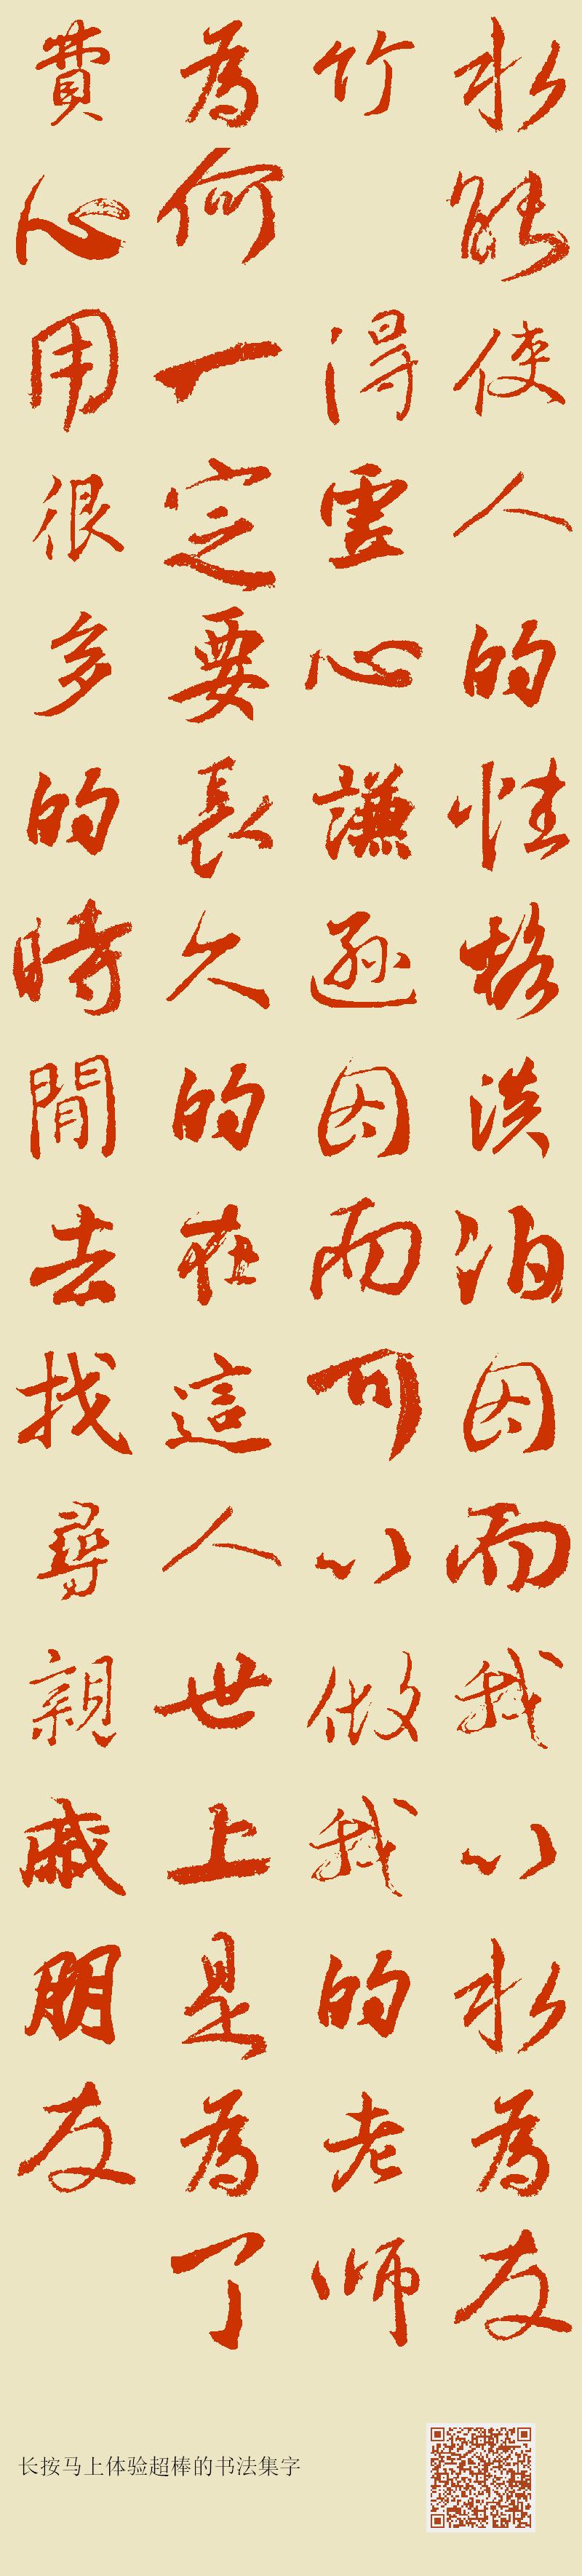 水能使人的性格淡泊因而我以水为友
竹 得靈心謙逊因而可以做我的老师
為何一定要長久的在這人世上是為了
費心用很多的時間去找尋親戚朋友
长按马上体验超棒的书法集字